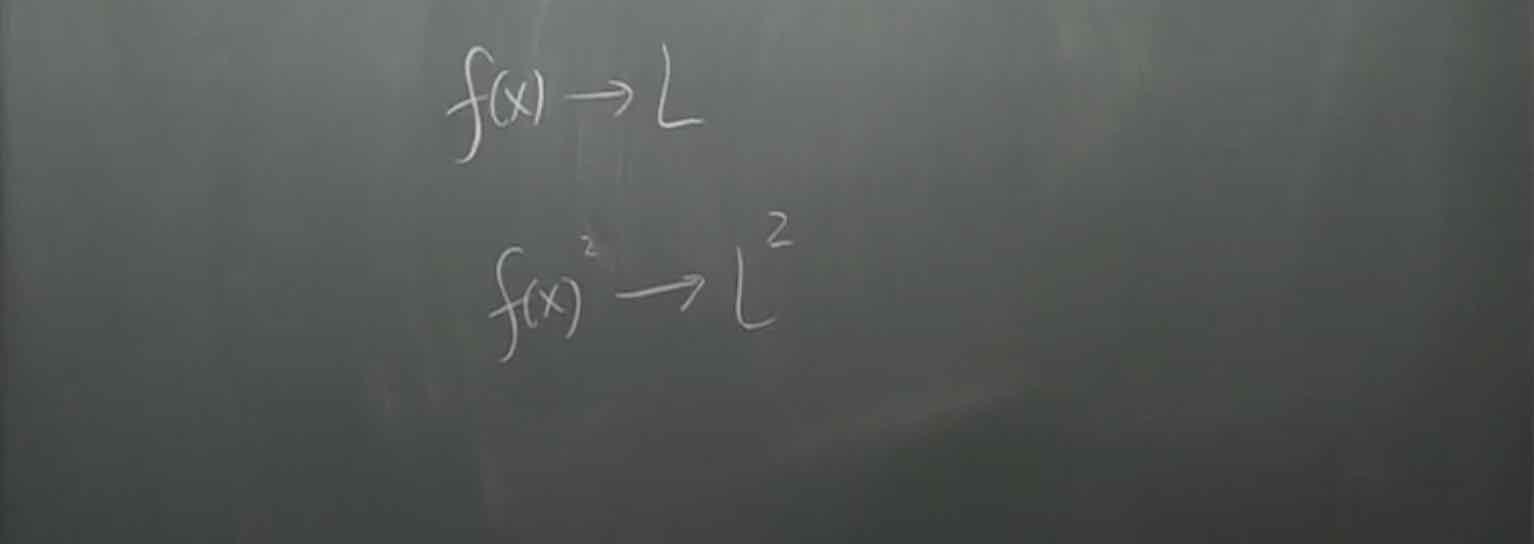 f(x) → L
f(x)² → L²